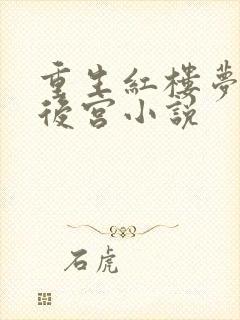 重生紅樓夢
後宮小說
石虎